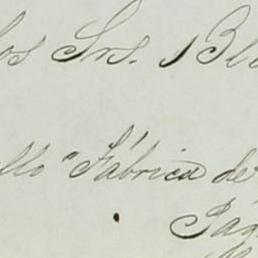 los Srs. Bl
llo "Fábrica de
Pág